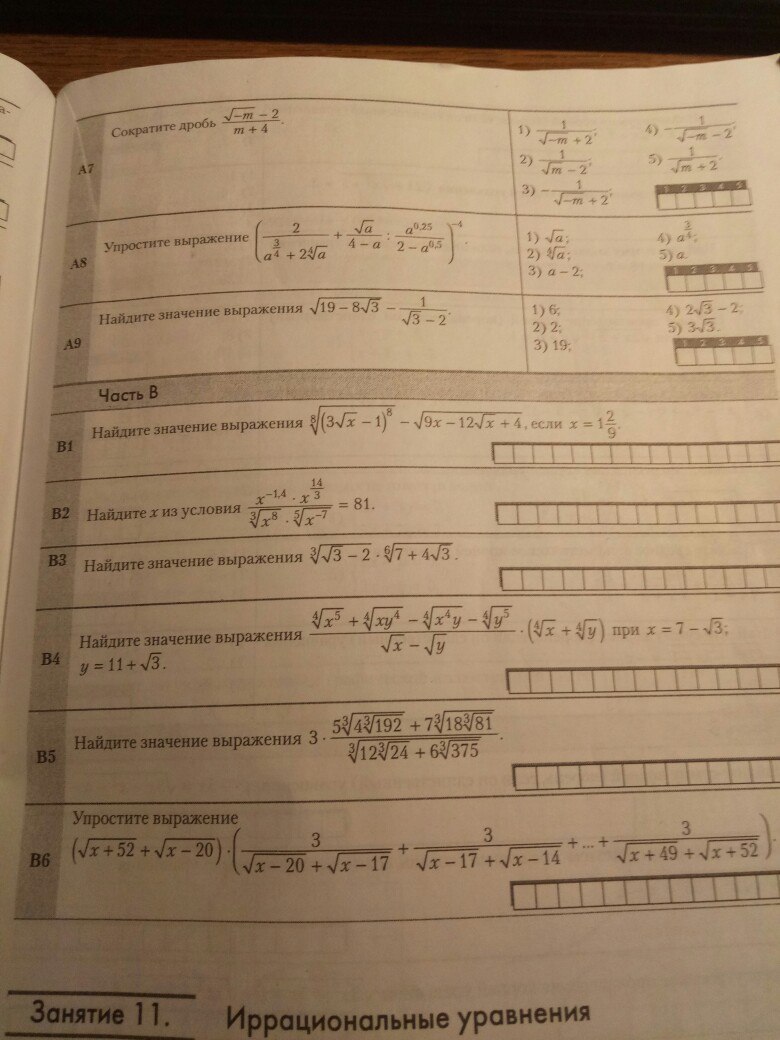 а-
А7
Сократите дробь (√(−m) − 2)/(m + 4).
1) 1/(√(−m) + 2);
4) 1/(√(−m) − 2);
2) 1/(√m − 2);
5) 1/(√m + 2).
3) −1/(√(−m) + 2);
1 2 3 4 5
А8
Упростите выражение (2/(a^(3/4) + 2⁴√a) + √a/(4 − a) : a^0,25/(2 − a^0,5))^(−4).
1) √a;
4) a^(3/4);
2) ⁴√a;
5) a.
3) a − 2;
1 2 3 4 5
А9
Найдите значение выражения √(19 − 8√3) − 1/(√3 − 2).
1) 6;
4) 2√3 − 2;
2) 2;
5) 3√3.
3) 19;
1 2 3 4 5
Часть В
В1
Найдите значение выражения ⁸√((3√x − 1)^8) − √(9x − 12√x + 4), если x = 1 2/9.
В2
Найдите x из условия (x^(−1,4) · x^(14/3))/(³√(x^8) · ⁵√(x^(−7))) = 81.
В3
Найдите значение выражения ³√(√3 − 2) · ⁶√(7 + 4√3).
В4
Найдите значение выражения (⁴√(x^5) + ⁴√(xy^4) − ⁴√(x^4y) − ⁴√(y^5))/(√x − √y) · (⁴√x + ⁴√y) при x = 7 − √3;
y = 11 + √3.
В5
Найдите значение выражения 3 · (5³√(4³√192) + 7³√(18³√81))/(³√(12³√24) + 6³√375).
В6
Упростите выражение
(√(x + 52) + √(x − 20)) · (3/(√(x − 20) + √(x − 17)) + 3/(√(x − 17) + √(x − 14)) + ... + 3/(√(x + 49) + √(x + 52))).
Занятие 11. Иррациональные уравнения